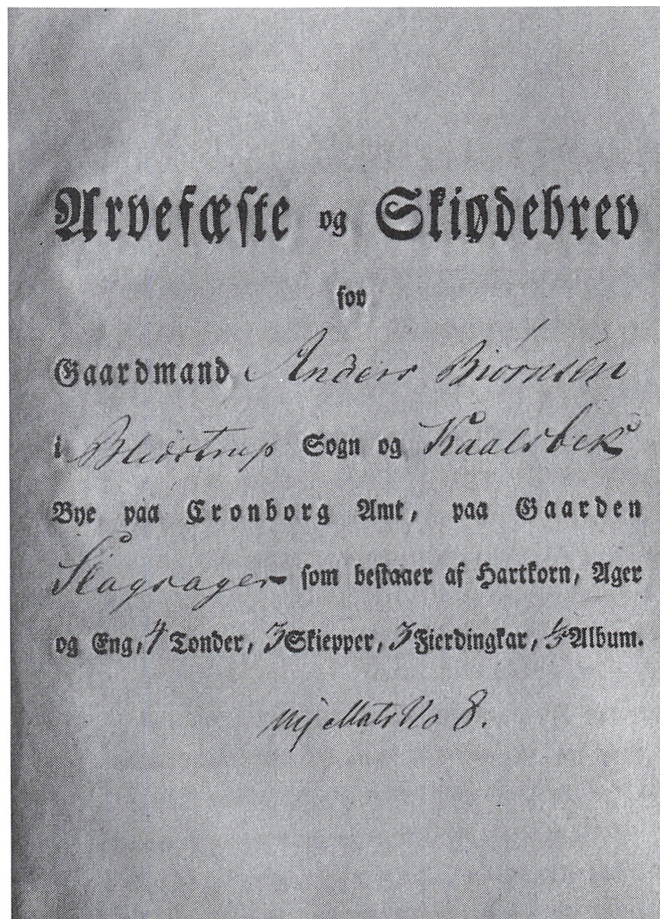 Arvefæste og Skiødebrev
for
Gaardmand Anders Biørnsen
i Blidstrup Sogn og Kaalsbek
Bye paa Cronborg Amt, paa Gaarden
Slagsager som bestaaer af Hartkorn, Ager
og Eng, 4 Tonder, 3 Skiepper, 3 Fierdingkar, Album.
No 8.